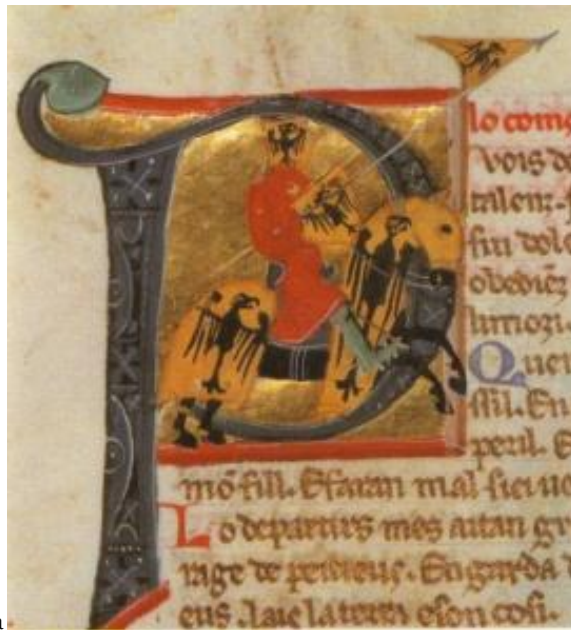 lo coms
P ois de
talenz. f
obediēz
limozi.
Quer
ssil. En
peril. E
mō fill. Efaran mal siei ue
Lo departirs mes aitan gr
rage de peitieus. Engarda d
eus. lais la terra eson cosi.